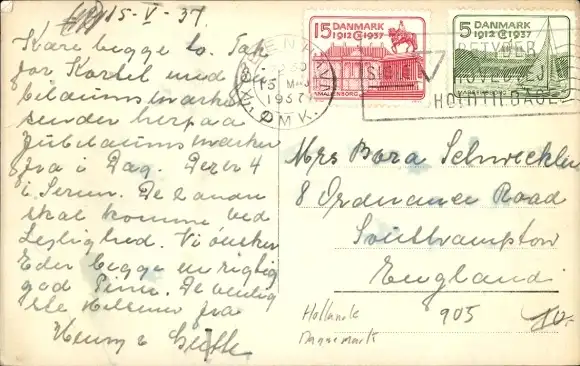 15-V-37.
Kære begge to. Tak
for Kortet med
bilæumsmærker
sender herpaa
Jubilæumsmærker
fra i Dag. Der er 4
i Serien. De 2 andre
skal komme ved
Lejlighed. Vi ønsker
Eder begge en rigtig
god Pinse. De venlig
ste Hilsener fra
Henry &
15 DANMARK
1912 1937
AMALIENBORG
5 DANMARK
1912 1937
KØBENHAVN
15 MAJ
1937
OMK.
BETYDER
HOVEDVEJ
HOLD TILBAGE
Mrs Bora
8 Ordnance Road
Southampton
England
Hollande
Dannemark
905
10.-